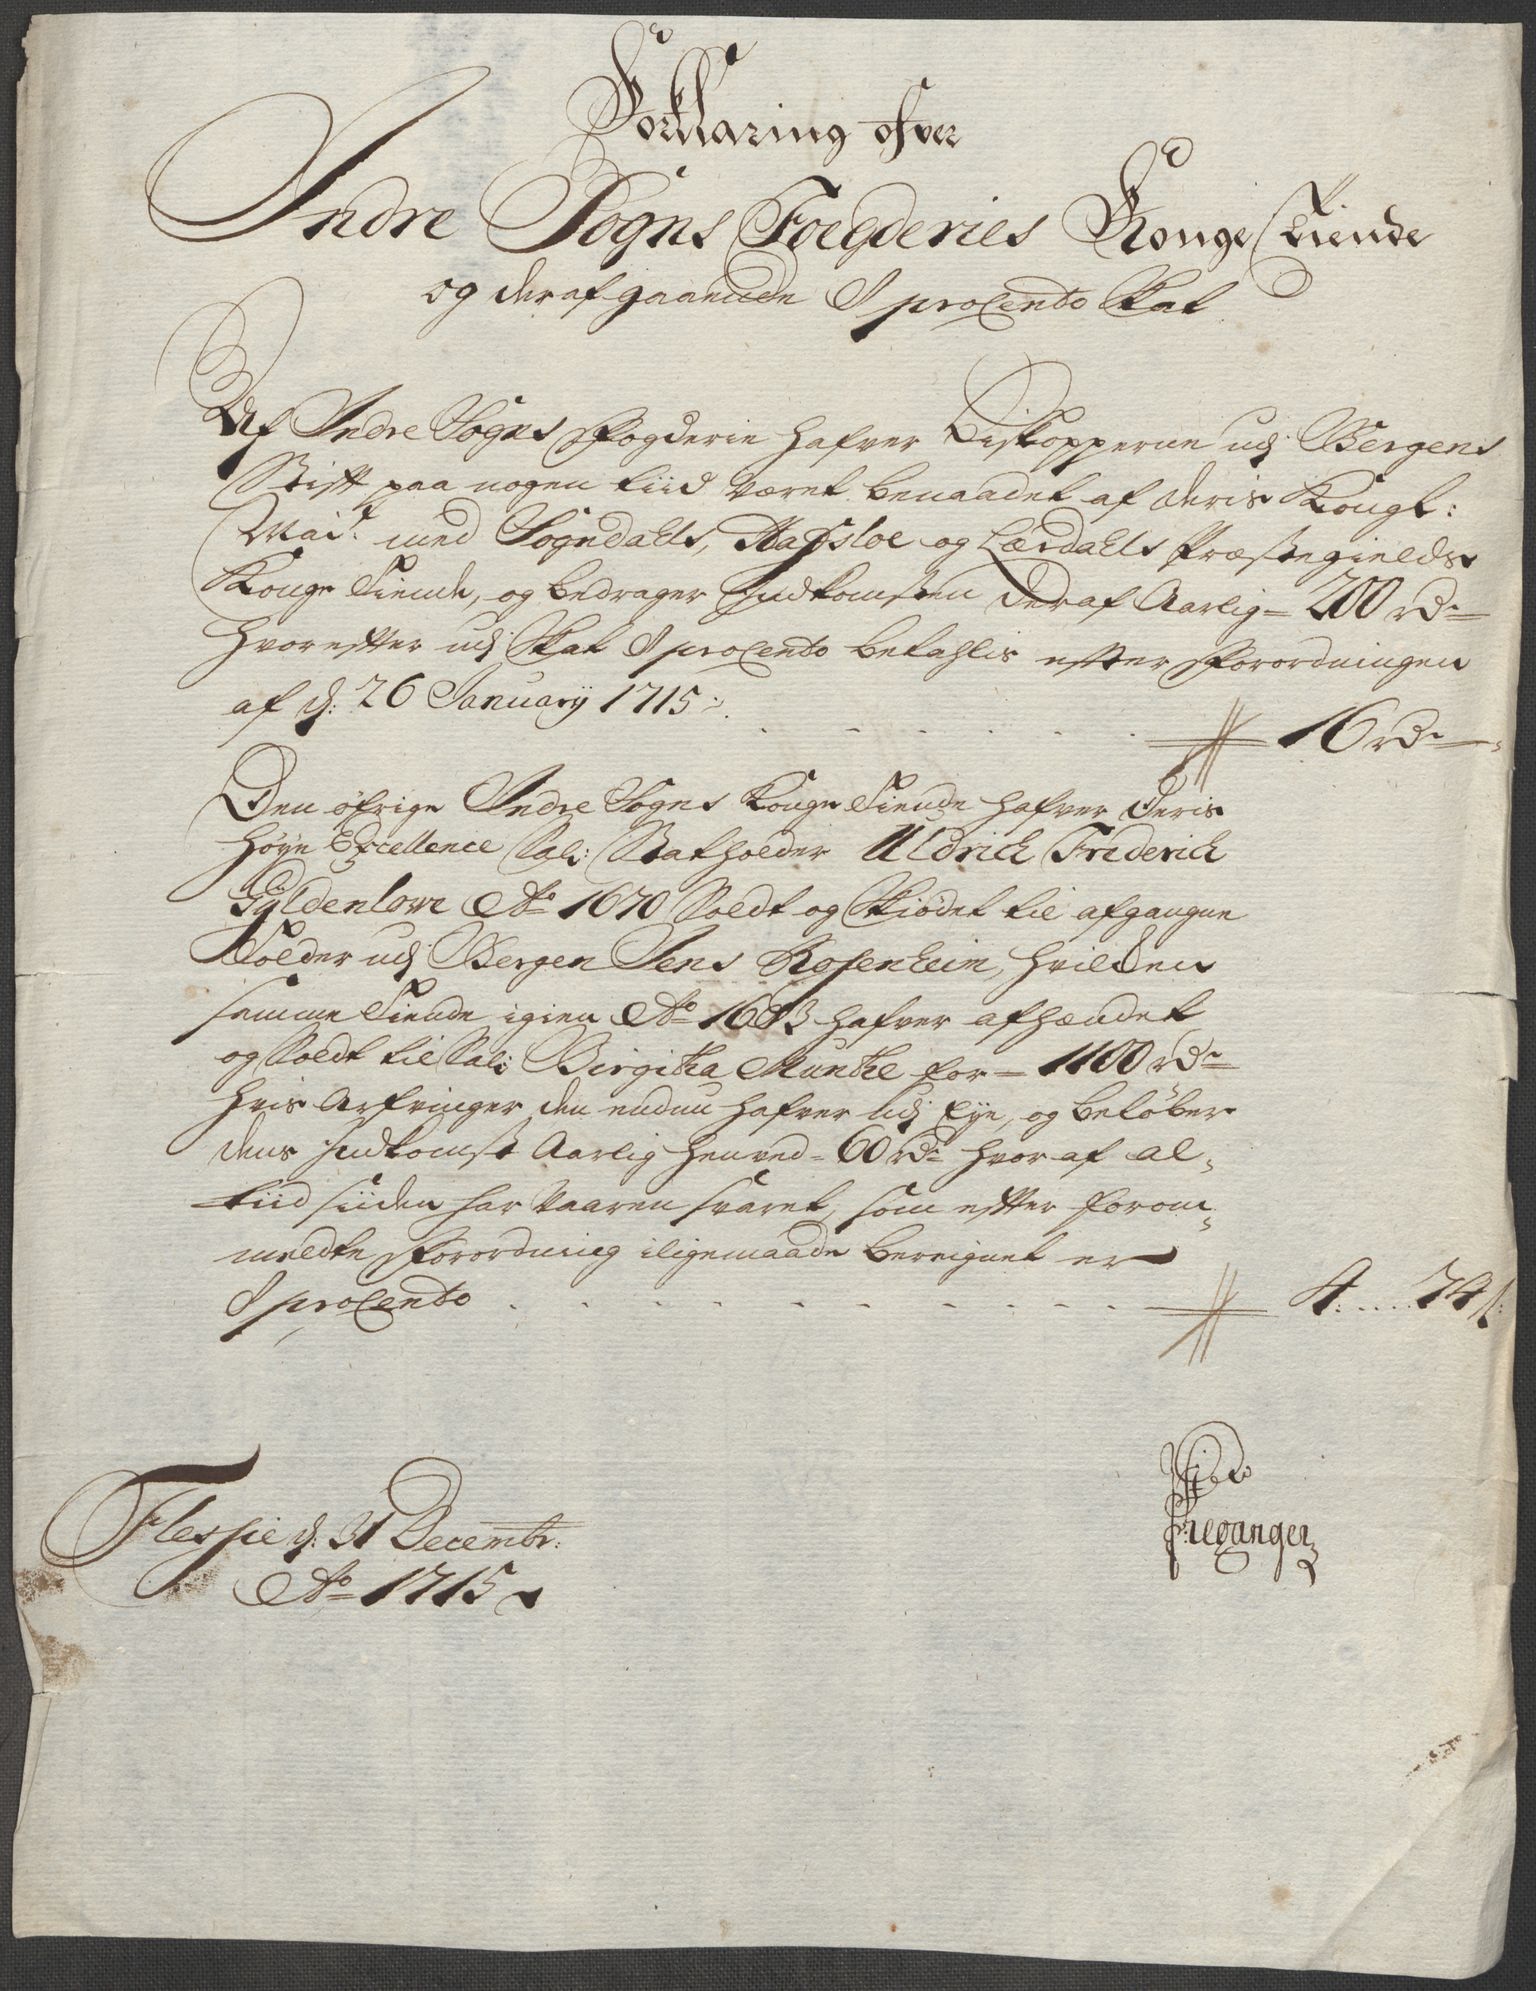 Forklaring ofver
Indre Sogns Foegderies Konge Tiende
og deraf gaaende 8 proCento Skat
Af Indre Sogns Fogderie hafver Biskopperne udj Bergens
Stift paa nogen tiid været benaadet af deris Kongl:
Mait: med Sogndahls, Hafsloe og Lærdahls Præstegields
Konge Tiende, og bedrager Indkomsten deraf Aarlig = 200 rdr
hvorefter udj Skat 8 proCento betahlis efter Forordningen
af d: 26 January 1715:
16 rdr
Den øfrige Indre Sogns Konge Tiende hafver Deris
Høye Excellence Sal: Statholder Uldrich Friderich
Gyldenlowe Ao 1670 Soldt og Skiødet til afgangne
Tolder udj Bergen Jens Rosenheim, hvilken
samme Tiende igien Ao 1683 hafver afhændet
og Soldt til Sal: Birgitha Munthe for = 1100 rdr
hvis Arfvinger den endnu hafver udj Eye, og beløber
dens Indkomst Aarlig henved = 60 rdr hvoraf al-
tiid siiden har vaaren svaret, som efter forom-
meldte Forordning iligemaade bereignet er
8 proCento
4: 74 s:
Flessie d: 31 Decembr:
Ao 1715